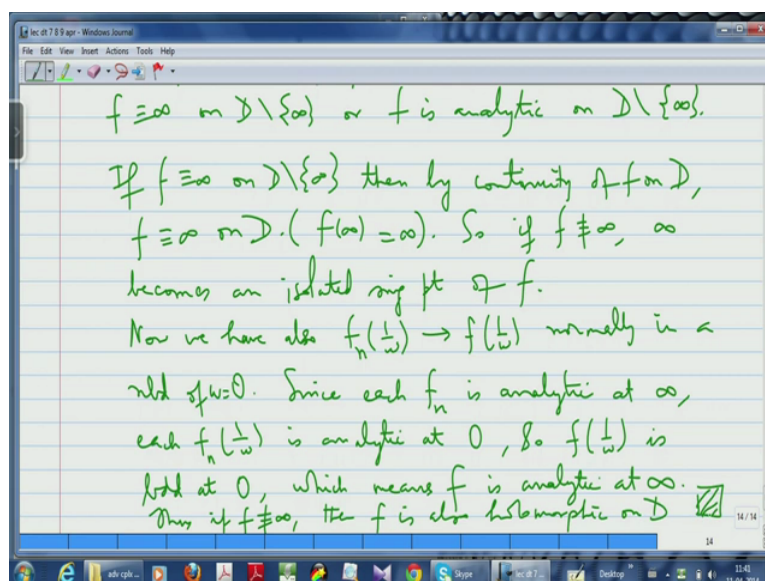 lec dt 7 8 9 apr - Windows Journal
File Edit View Insert Actions Tools Help
f ≡∞ on D\{∞} or f is analytic on D\{∞}.
If f ≡∞ on D\{∞} then by continuity of f on D,
f ≡∞ on D. ( f(∞) = ∞). So if f ≢ ∞, ∞
becomes an isolated sing pt of f.
Now we have also fₙ(1/w) → f(1/w) normally in a
nbd of w=0. Since each fₙ is analytic at ∞,
each fₙ(1/w) is analytic at 0, so f(1/w) is
bdd at 0, which means f is analytic at ∞.
Thus if f ≢ ∞, then f is also holomorphic on D
14 / 14
14
adv cplx ...
Skype
lec dt 7 ...
Desktop
11:41